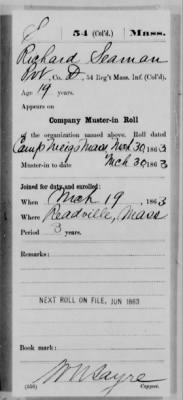 S 54 (Col'd.) Mass.
Richard Seaman
Pvt, Co. D, 54 Reg't Mass. Inf. (Col'd).
Age 19 years.
Appears on
Company Muster-in Roll
of the organization named above. Roll dated
Camp Meigs Mass, Mch 30, 1863
Muster-in to date Mch 30, 1863
Joined for duty and enrolled:
When Mch 19, 1863
Where Readville, Mass
Period 3 years.
Remarks:
NEXT ROLL ON FILE, JUN 1863
Book mark:
Sayre
(356) Copyist.